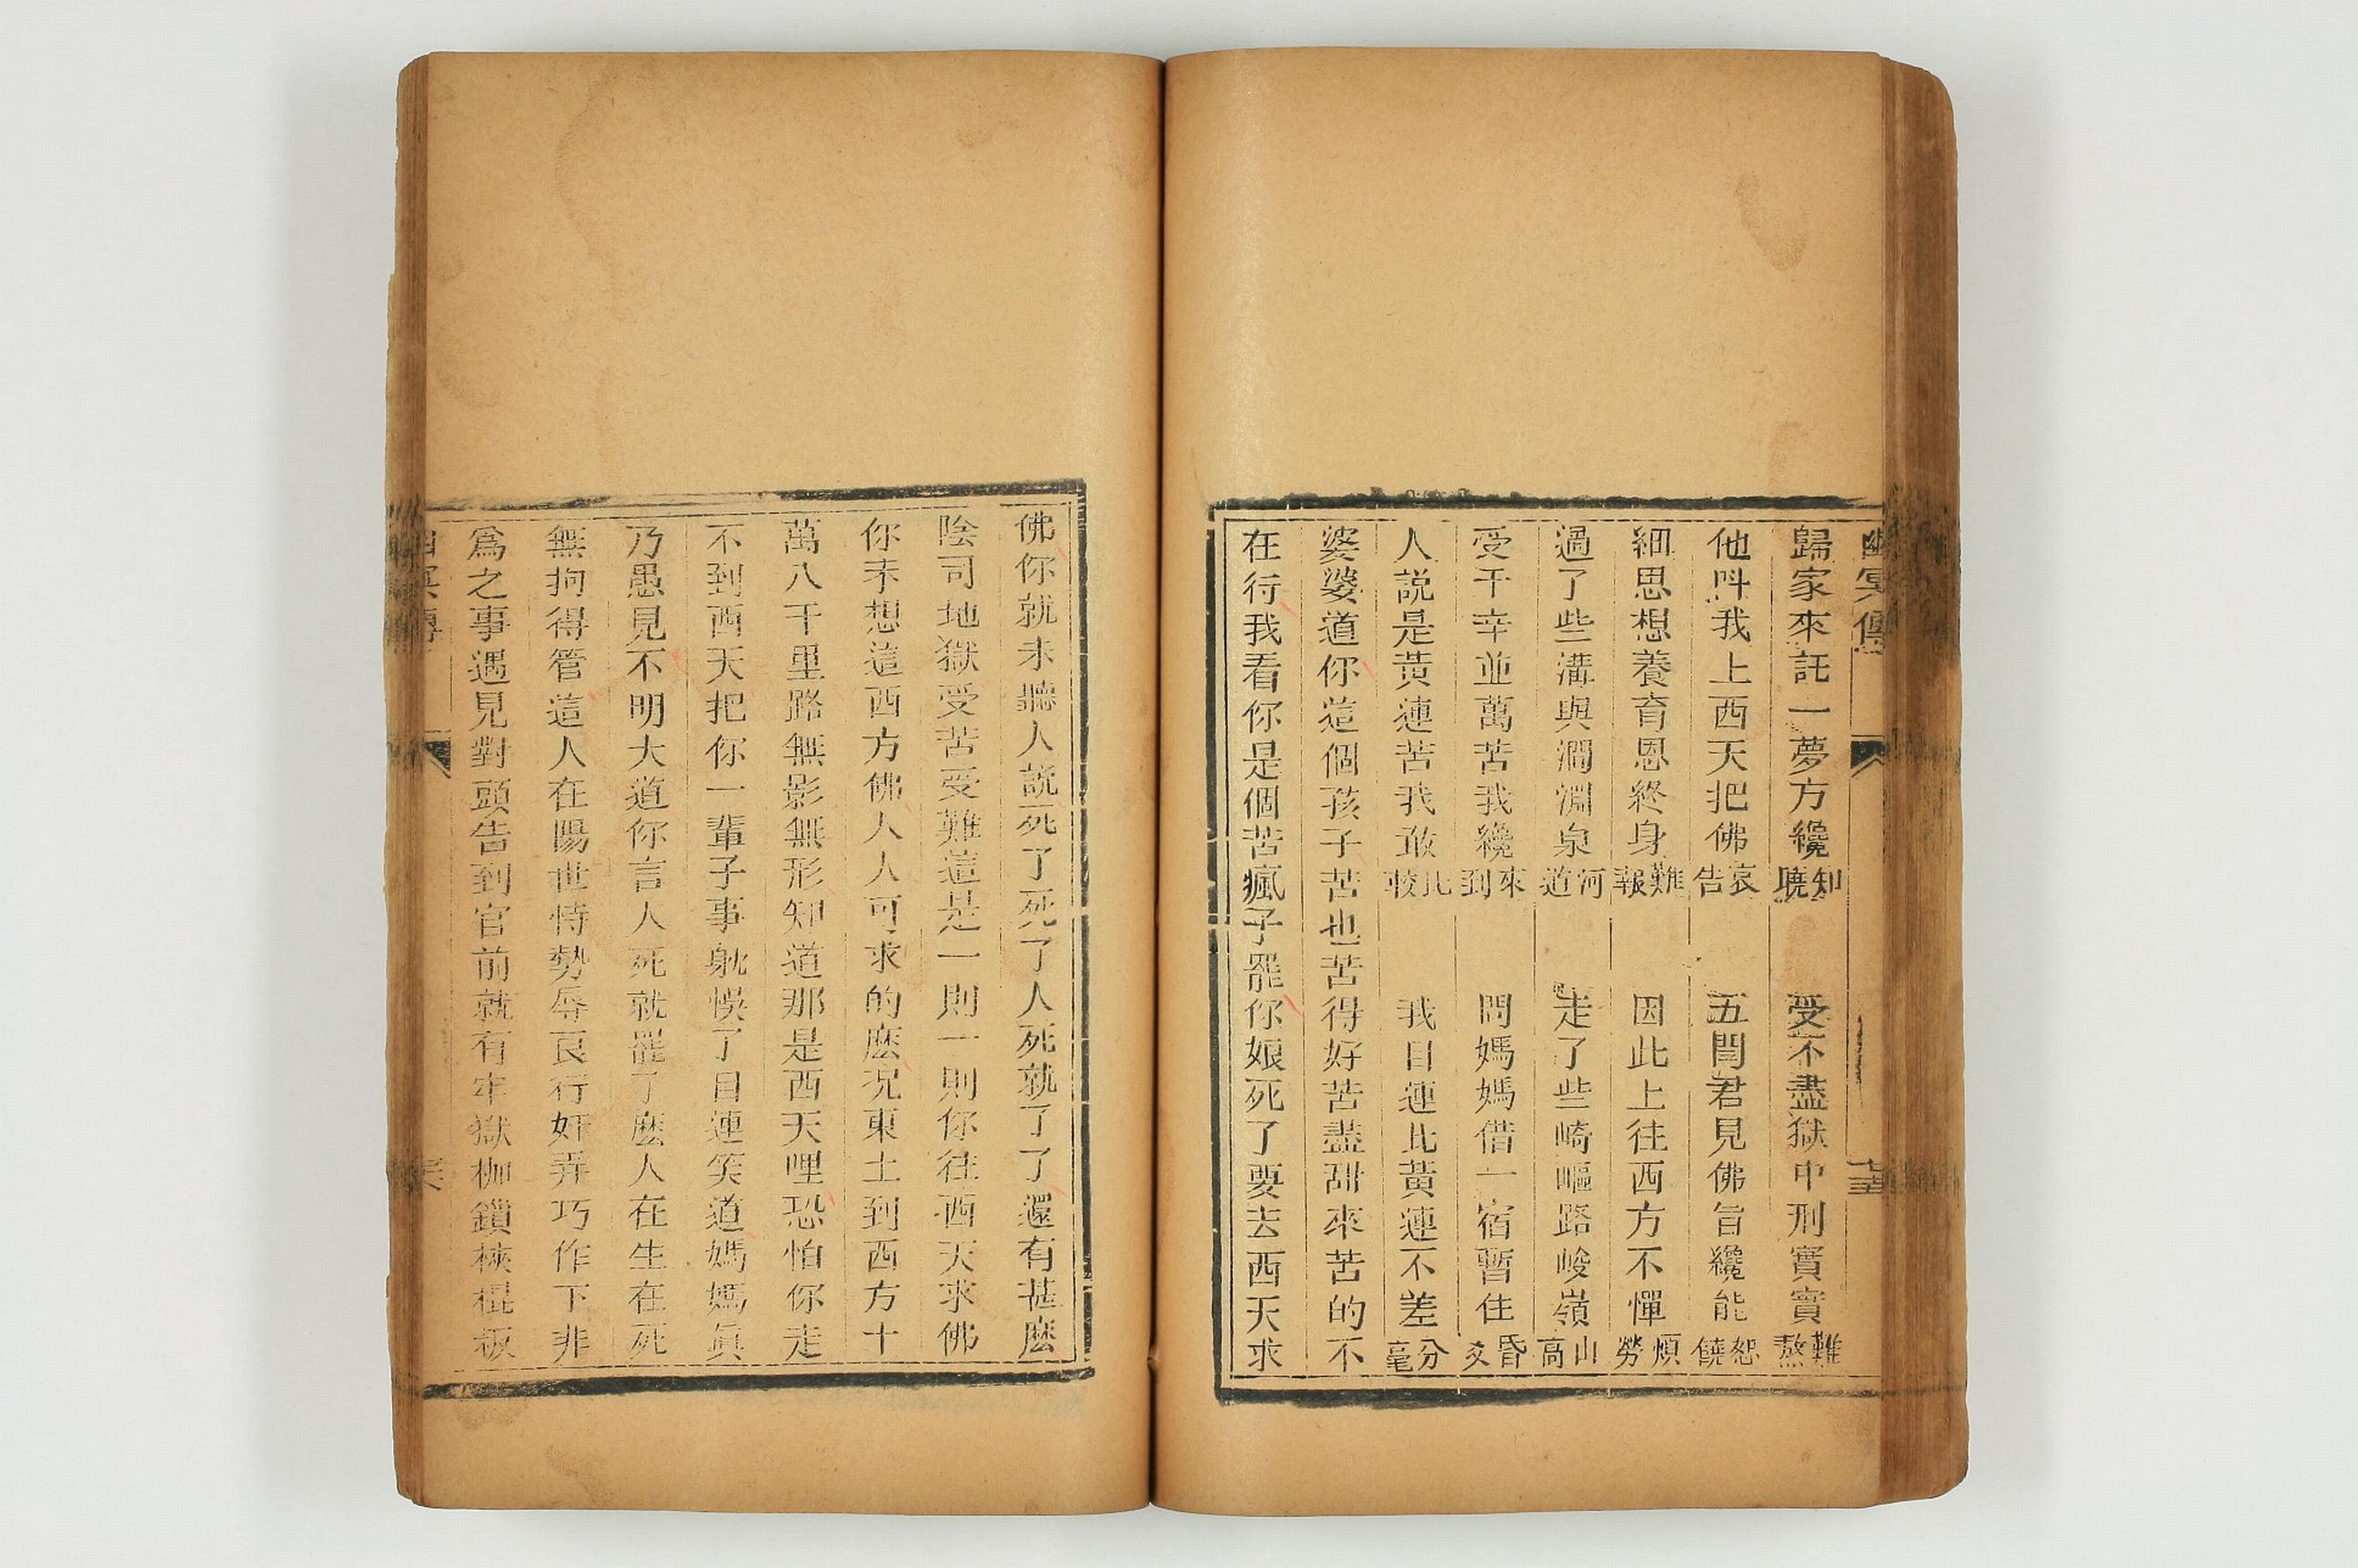 幽冥傳
歸家來託一夢方纔知曉 受不盡獄中刑實實難熬
他呌我上西天把佛哀告 五閻君見佛旨纔能恕饒
細思想養育恩終身難報 因此上往西方不憚煩勞
過了些溝與澗淵泉河道 走了些崎嶇路峻嶺山高
受千幸並萬苦我纔來到 問媽媽借一宿暫住昏夂
人説是黃連苦我敢比較 我目連比黃連不差分毫
婆婆道你這個孩子苦也苦得好苦盡甜來苦的不
在行我看你是個苦瘋子罷你娘死了要去西天求
佛你就未聽人說死了死了人死就了了還有甚麽
陰司地獄受苦受難這是一則一則你往西天求佛
你未想這西方佛人人可求的麽况東土到西方十
萬八千里路無影無形知道那是西天哩恐怕你走
不到西天把你一輩子事躭悞了目連笑道媽媽眞
乃愚見不明大道你言人死就罷了麽人在生在死
無拘得管這人在陽世恃勢辱良行奸弄巧作下非
爲之事遇見對頭告到官前就有牢獄枷鎖梜棍板